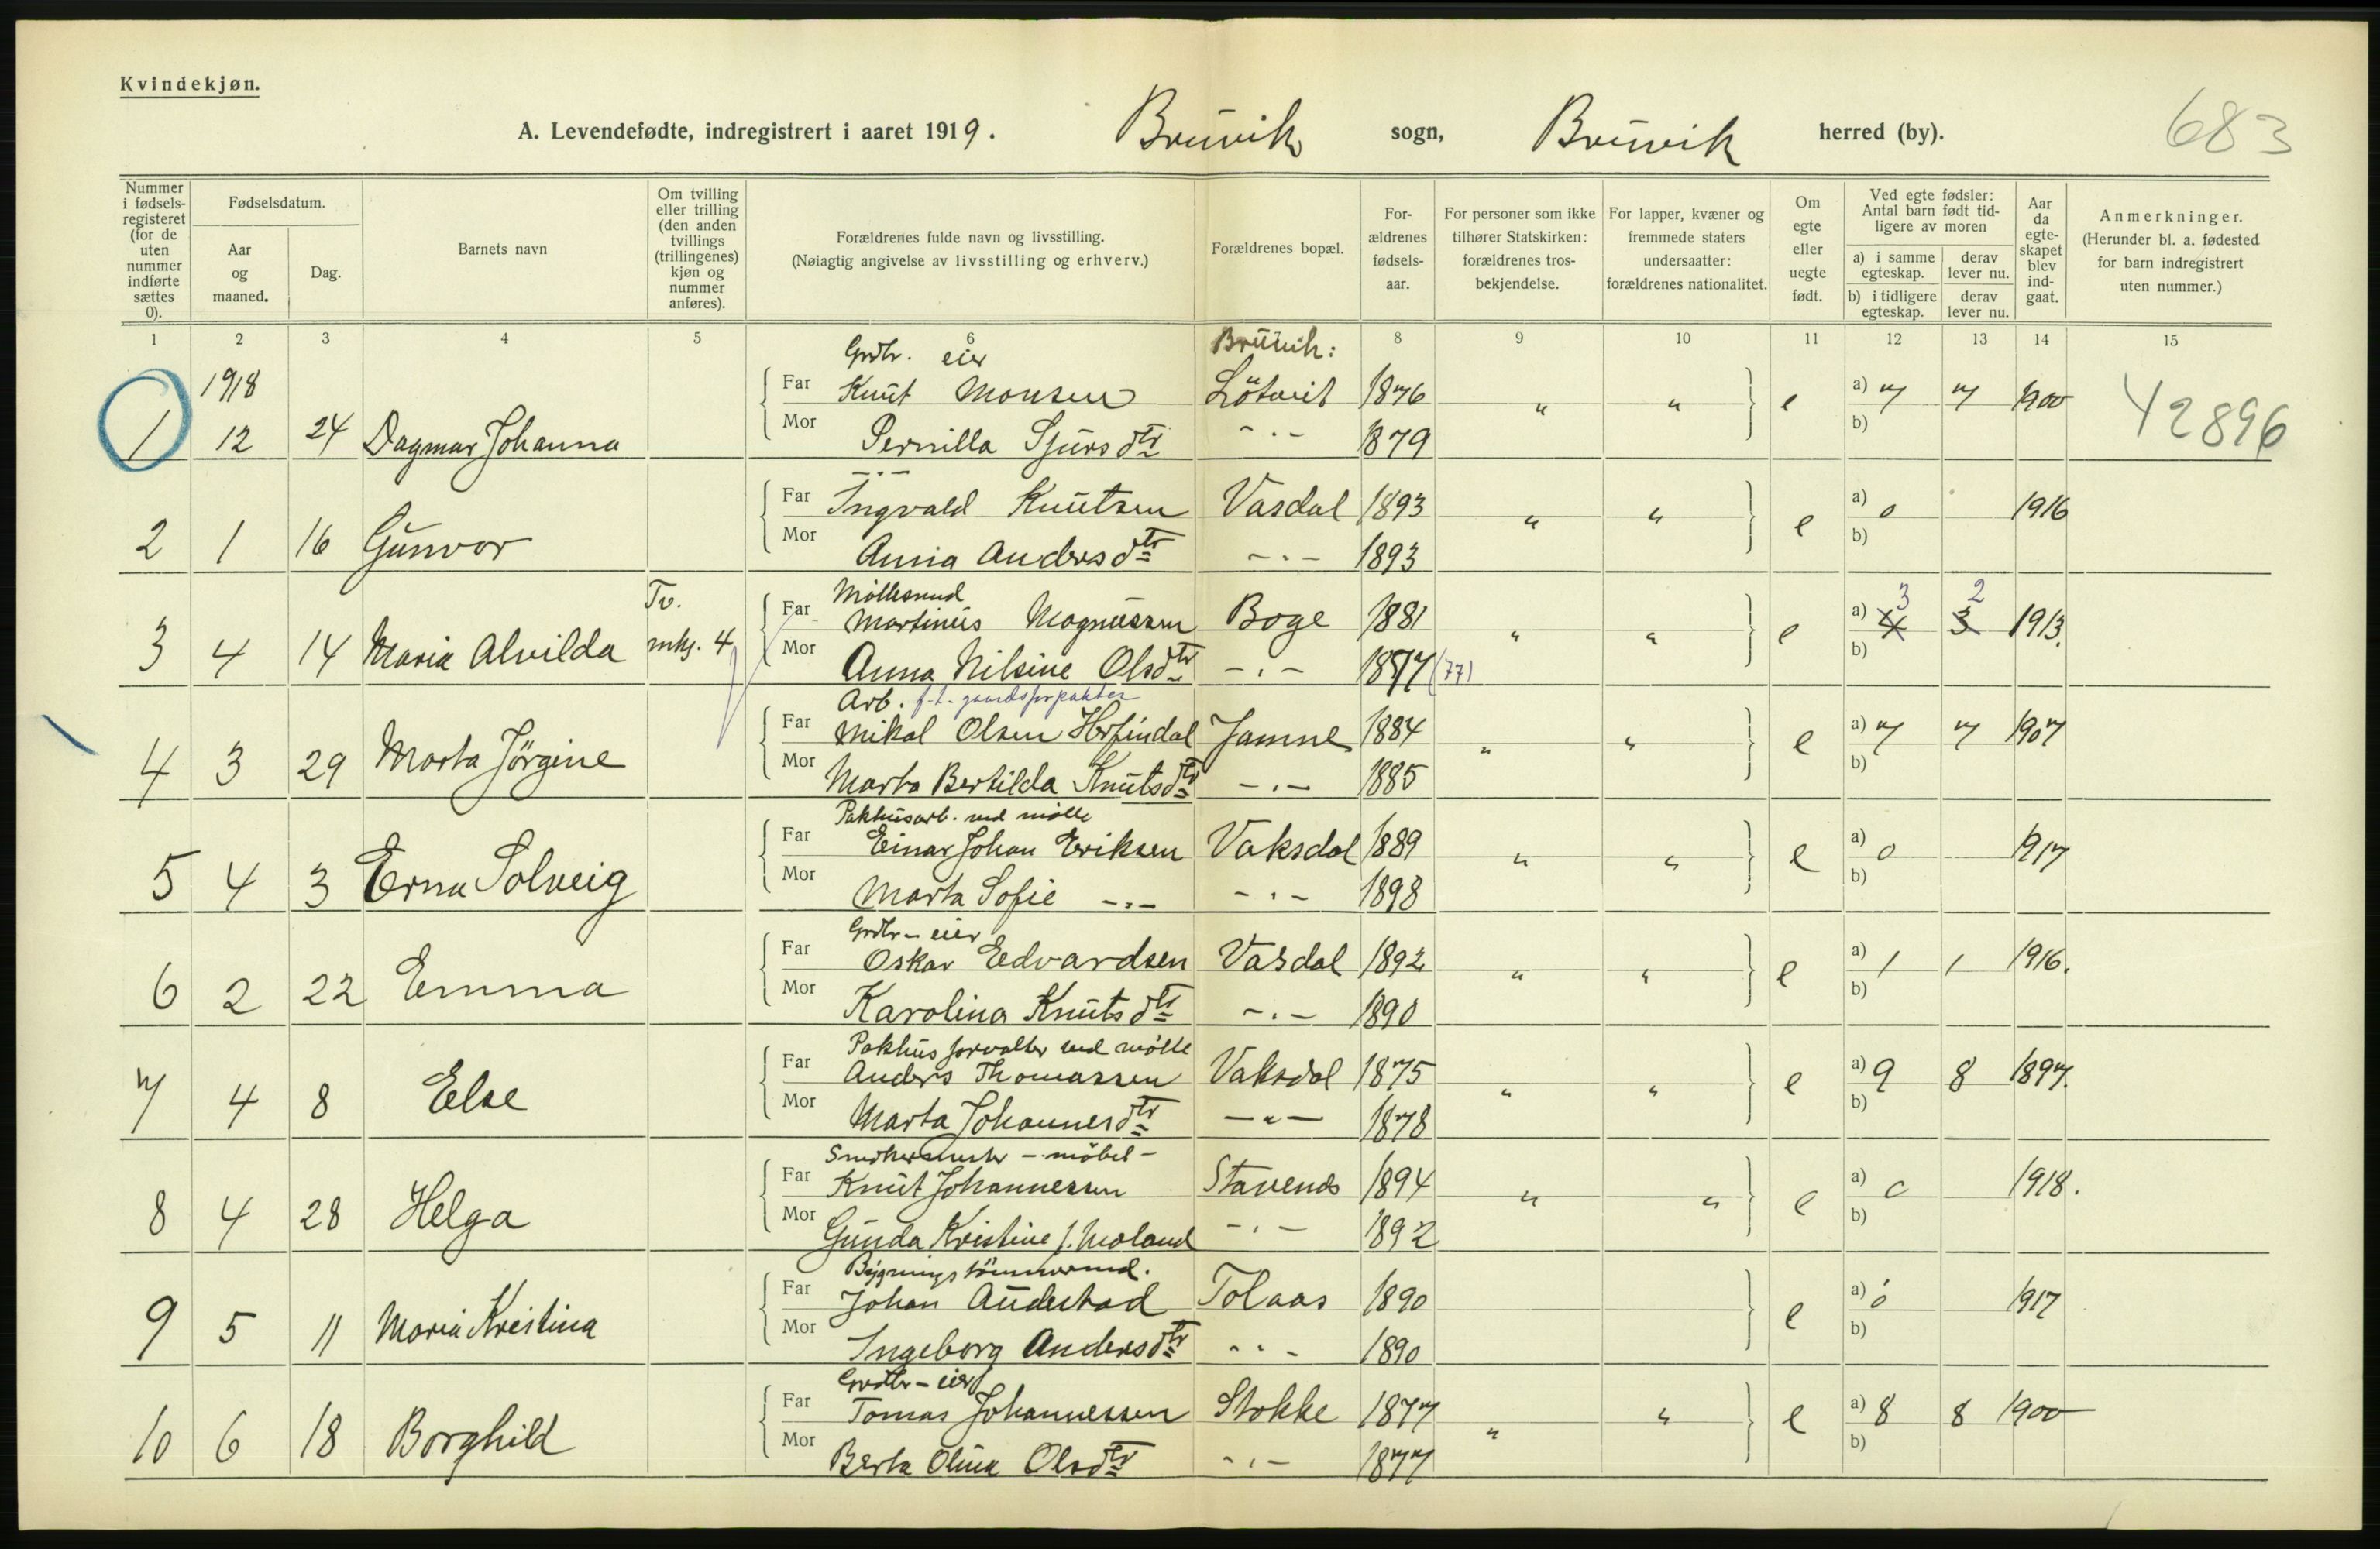 Kvindekjøn.
A. Levendefødte, indregistrert i aaret 1919. Bruvik sogn, Bruvik herred (by). 683
Nummer i fødsels-registeret (for de uten nummer indførte sættes 0).
Fødselsdatum.
Aar og maaned.
Dag.
Barnets navn
Om tvilling eller trilling (den anden tvillings (trillingenes) kjøn og nummer anføres).
Forældrenes fulde navn og livsstilling.
(Nøiagtig angivelse av livsstilling og erhverv.)
Forældrenes bopæl.
For-ældrenes fødsels-aar.
For personer som ikke tilhører Statskirken: forældrenes tros-bekjendelse.
For lapper, kvæner og fremmede staters undersaatter: forældrenes nationalitet.
Om egte eller uegte født.
Ved egte fødsler: Antal barn født tid-ligere av moren
a) i samme egteskap. derav lever nu.
b) i tidligere egteskap. derav lever nu.
Aar da egte-skapet blev ind-gaat.
Anmerkninger.
(Herunder bl. a. fødested for barn indregistrert uten nummer.)
1 2 3 4 5 6 8 9 10 11 12 13 14 15
Grdbr. eier Bruvik:
1918 Far Knut Monsen Lötveit 1876 " " e a) 7 7 1900 42896
1 12 24 Dagmar Johanna Mor Pernilla Sjurs dtr - . - 1879 b)
- . -
Far Ingvald Knutsen Vasdal 1893 " " e a) 0 1916
2 1 16 Gunvor Mor Anna Anders dtr - . - 1893 b)
Tv. Möllesvend 3 2
Far Martinus Magnussen Boge 1881 " " e a) 4 3 1913.
3 4 14 Maria Alvilda mkj. 4 Mor Anna Nilsine Olsdtr - . - 1877 (77) b)
Arb. f.t. gaardsforpakter
Far Mikal Olsen Herfindal Jamne 1884 " " e a) 7 7 1907
4 3 29 Marta Jörgine Mor Marta Bertilda Knutsdtr - . - 1885 b)
Pakhusarb. ved mölle
Far Einar Johan Eriksen Vaksdal 1889 " " e a) 0 1917
5 4 3 Erna Solveig Mor Marta Sofie - . - - . - 1898 b)
Grdbr - eier
Far Oskar Edvardsen Vasdal 1892 " " e a) 1 1 1916.
6 2 22 Emma Mor Karolina Knuts dtr - . - 1890 b)
Pakhus forvalter ved mölle
Far Anders Thomassen Vaksdal 1875 " " e a) 9 8 1897.
7 4 8 Else Mor Marta Johannesdtr - " - 1878 b)
- möbel -
Far Knut Johannessen Stavenes 1894 " " e a) 0 1918.
8 4 28 Helga Mor Gunda Kristine f. Moland - . - 1892 b)
Bygnings tömmermd.
Far Johan Audestad Tolaas 1890 e a) 0 1917
9 5 11 Maria Kristina Mor Ingeborg Andersdtr - . - 1890 b)
Grdbr - eier
Far Tomas Johannessen Stokke 1877 " " e a) 8 8 1900
10 6 18 Borghild Mor Berta Olina Olsdtr - . - 1877 b)